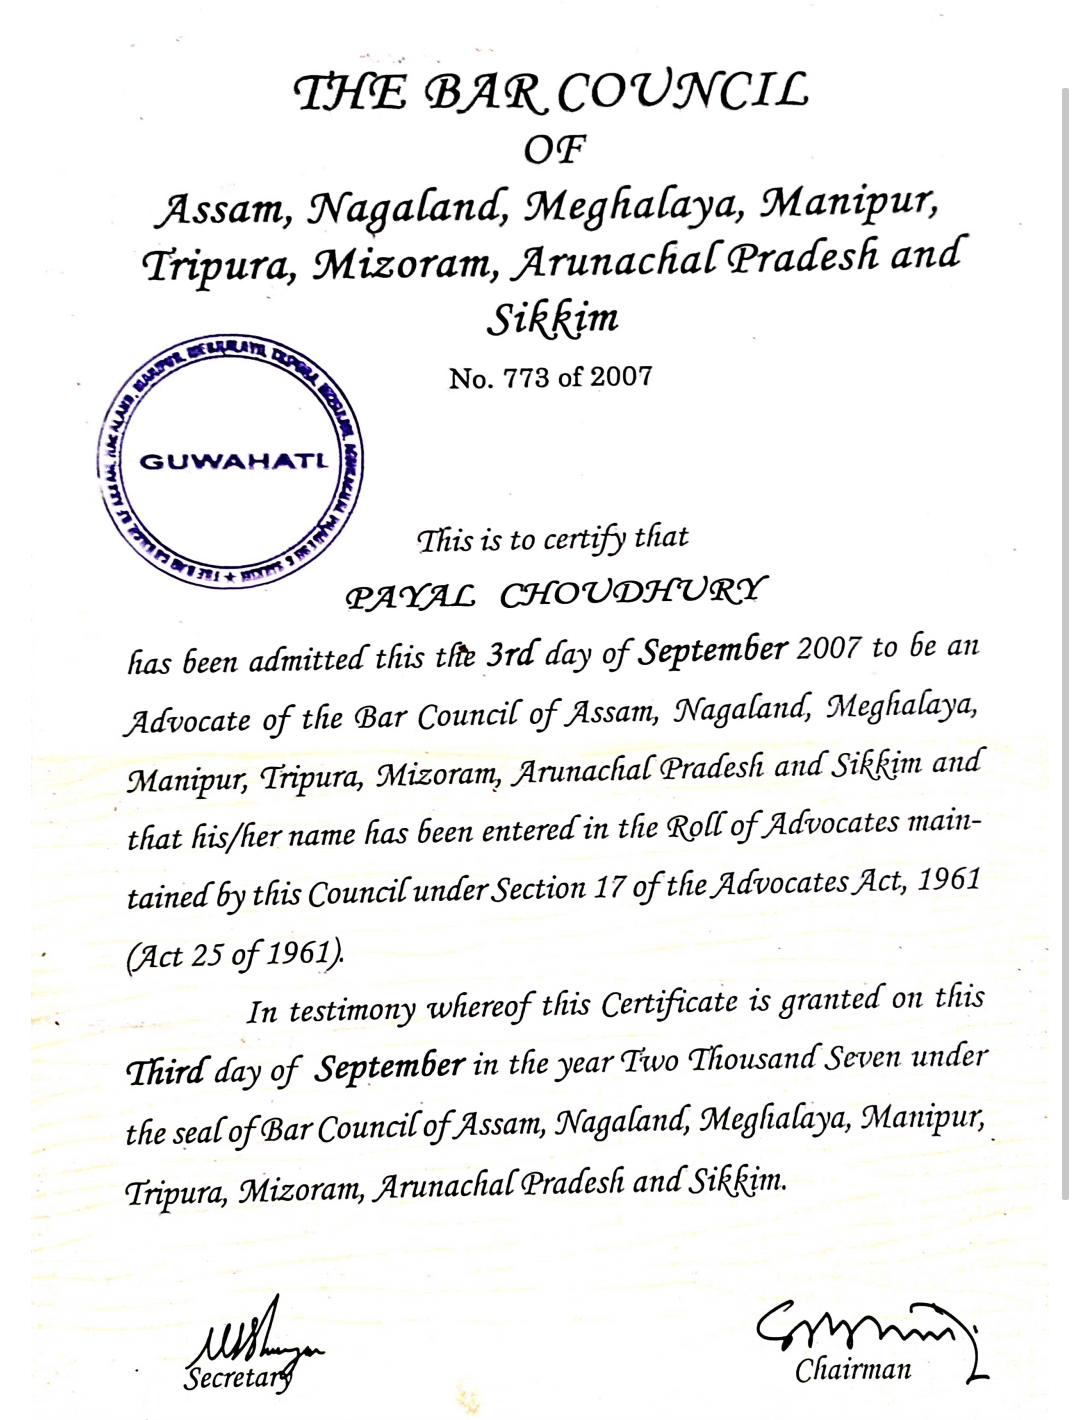 THE BAR COUNCIL
OF
Assam, Nagaland, Meghalaya, Manipur,
Tripura, Mizoram, Arunachal Pradesh and
Sikkim
No. 773 of 2007
GUWAHATI.
This is to certify that
PAYAL CHOUDHURY
has been admitted this the 3rd day of September 2007 to be an
Advocate of the Bar Council of Assam, Nagaland, Meghalaya,
Manipur, Tripura, Mizoram, Arunachal Pradesh and Sikkim and
that his/her name has been entered in the Roll of Advocates main-
tained by this Council under Section 17 of the Advocates Act, 1961
(Act 25 of 1961).
In testimony whereof this Certificate is granted on this
Third day of September in the year Two Thousand Seven under
the seal of Bar Council of Assam, Nagaland, Meghalaya, Manipur,
Tripura, Mizoram, Arunachal Pradesh and Sikkim.
Secretary
Chairman